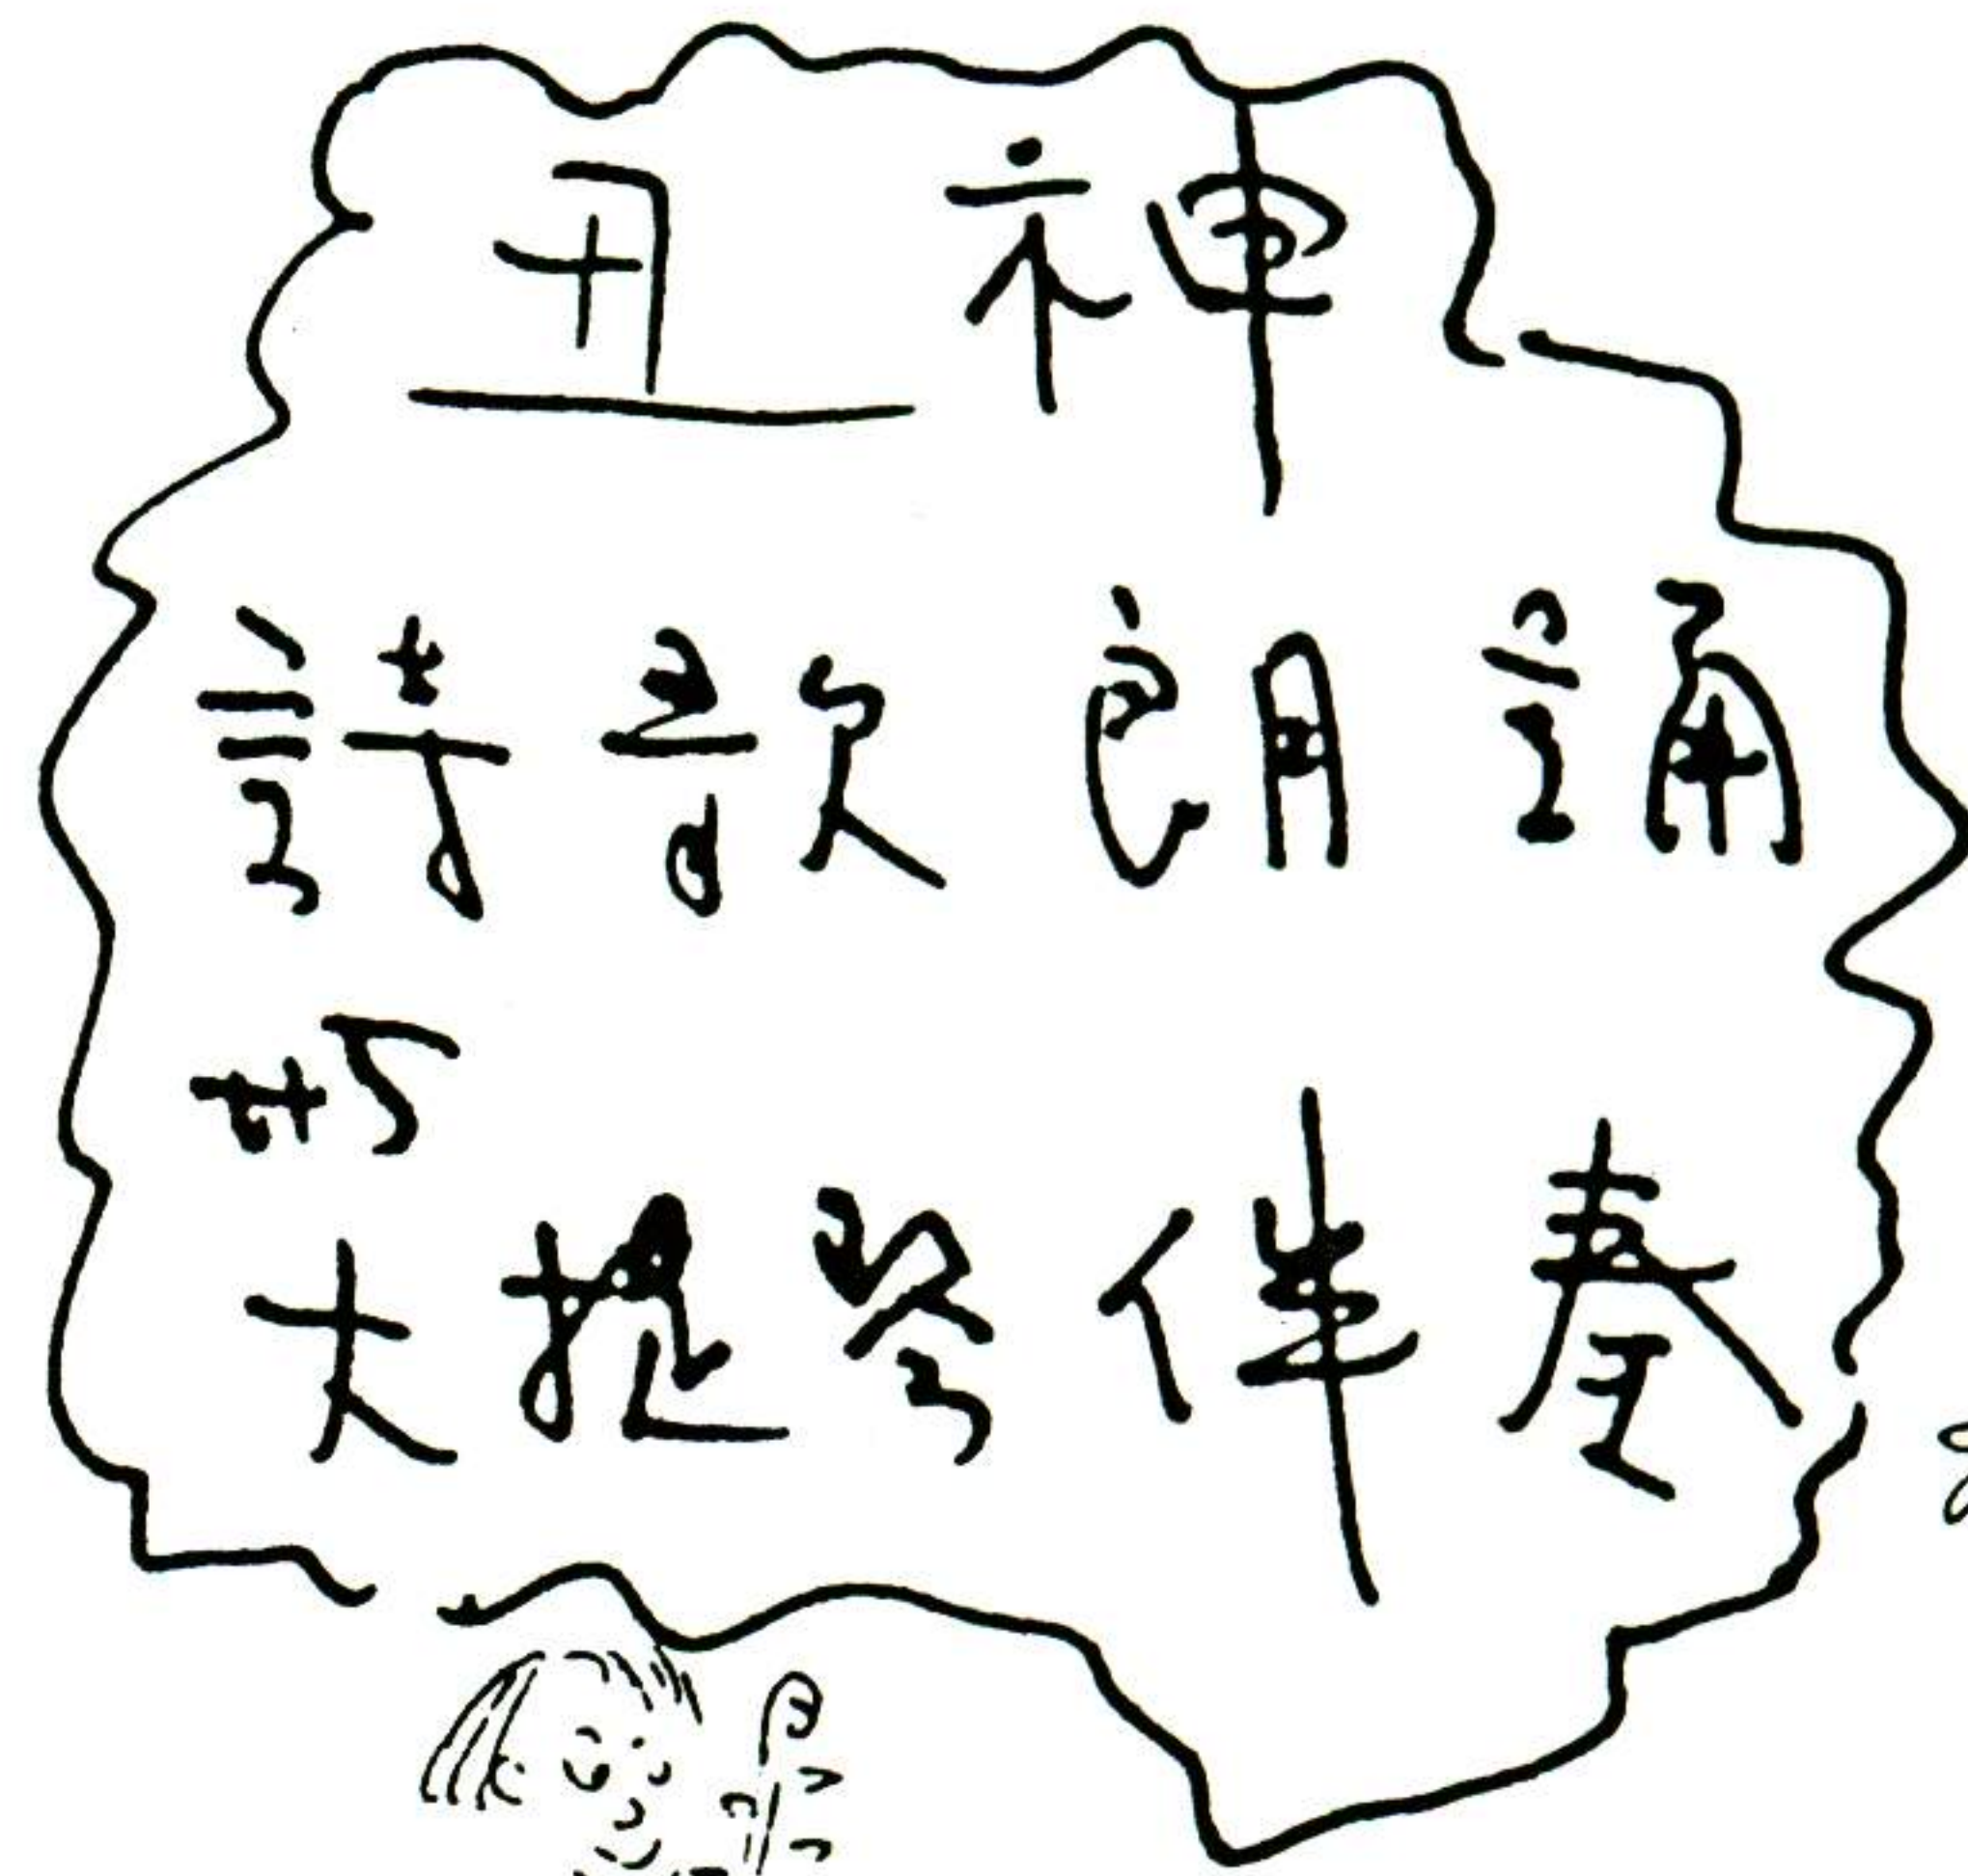 丑神
詩歌朗誦
大提琴伴奏